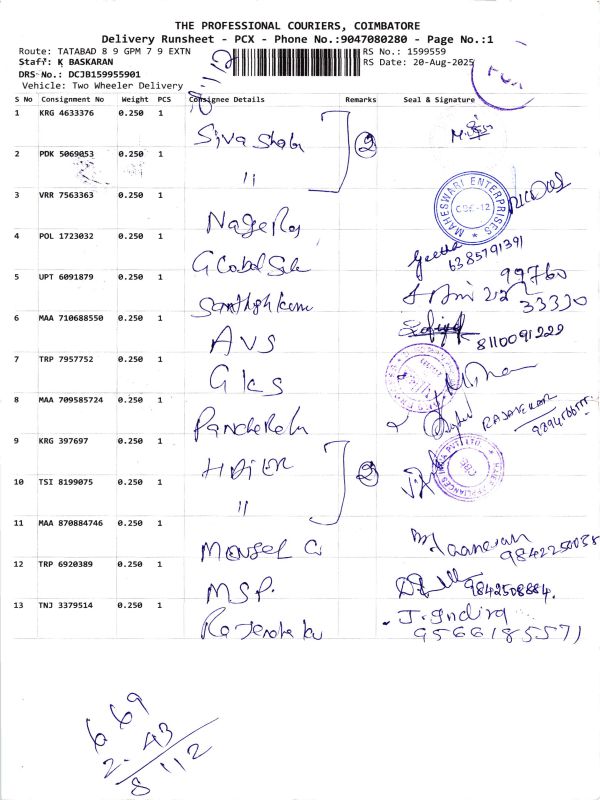 THE PROFESSIONAL COURIERS, COIMBATORE
Delivery Runsheet - PCX - Phone No.:9047080280 - Page No.:1
Route: TATABAD 8 9 GPM 7 9 EXTN
RS No.: 1599559
Staff: K BASKARAN
RS Date: 20-Aug-2025
DRS No.: DCJB159955901
Vehicle: Two Wheeler Delivery
S No Consignment No Weight PCS Consignee Details Remarks Seal & Signature
1 KRG 4633376 0.250 1 Siva Shak
2
2 PDK 5069053 0.250 1 "
3 VRR 7563363 0.250 1 Nage Raj
MAHESWARI ENTERPRISES
CBE-12
4 POL 1723032 0.250 1 Global Sale
Geetha
6385791391
5 UPT 6091879 0.250 1 Santhosh Kumar
99760
33330
6 MAA 710688550 0.250 1 AVS
8110091229
7 TRP 7957752 0.250 1 GKS
8 MAA 709585724 0.250 1
RAJASEKAR
9 KRG 397697 0.250 1
2
10 TSI 8199075 0.250 1 "
11 MAA 870884746 0.250 1
9842250038
12 TRP 6920389 0.250 1 MSP.
9842508884.
13 TNJ 3379514 0.250 1
J. Indira
9566185571
669
2.43
8112